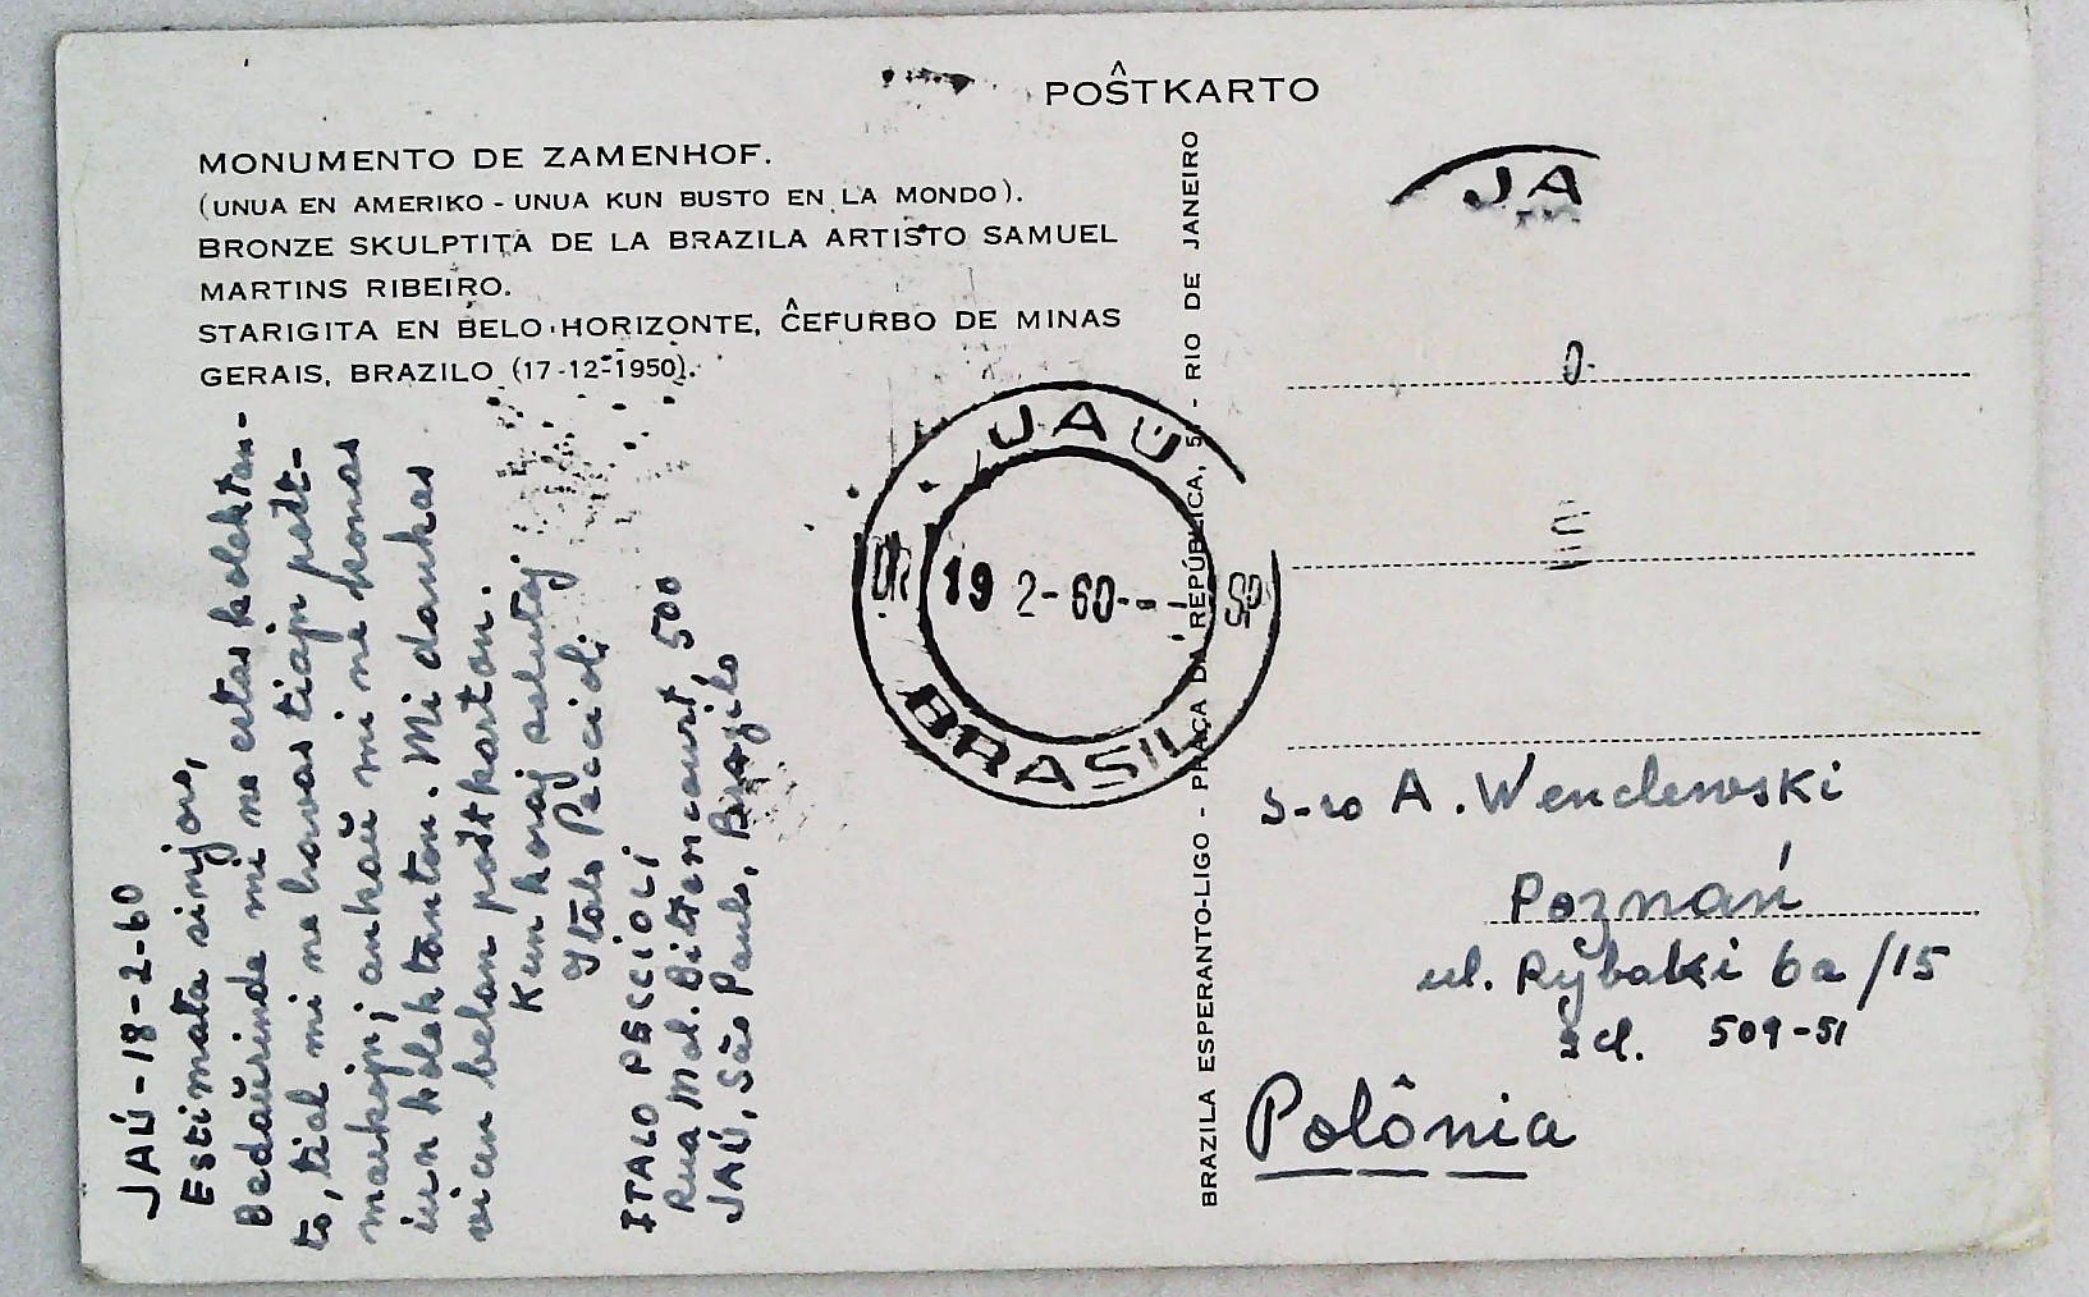 POŜTKARTO
MONUMENTO DE ZAMENHOF.
(UNUA EN AMERIKO - UNUA KUN BUSTO EN LA MONDO).
BRONZE SKULPTITA DE LA BRAZILA ARTISTO SAMUEL
MARTINS RIBEIRO.
STARIGITA EN BELO HORIZONTE, ĈEFURBO DE MINAS
GERAIS, BRAZILO (17-12-1950).
JAÚ-18-2-60
Estimata sinjoro,
Bedaŭrinde mi ne estas kolektan-
to, tial mi ne havas tiajn poŝt-
markojn; ankaŭ mi ne konas
iun kolektanton. Mi dankas
vian belan poŝtkarton.
Kun koraj salutoj
Italo Peccioli
ITALO PECCIOLI
Rua Mal. Bittencourt, 500
JAÚ, São Paulo, Brazilo
JAÚ
19 2-60
BRASIL
BRAZILA ESPERANTO-LIGO - PRAÇA DA REPÚBLICA, 5 - RIO DE JANEIRO
JA
S-ro A. Wenclewski
Poznań
ul. Rybaki 6a/15
509-51
Polônia